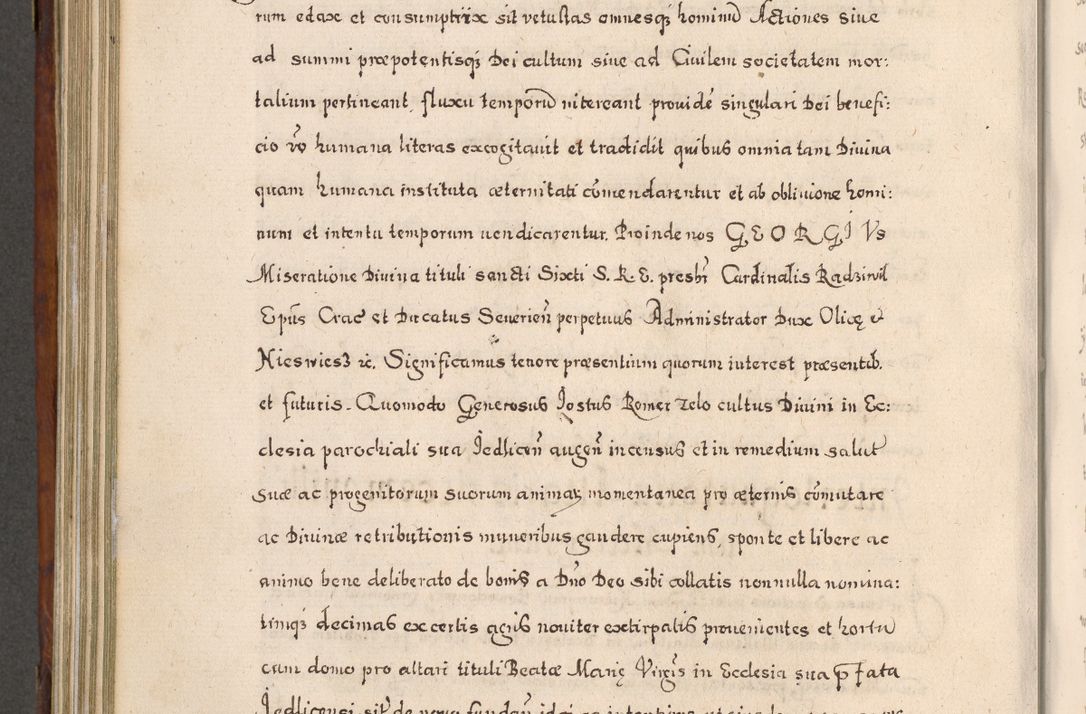 rum edax et consumptrix sit vetustas omnesq; hominũ Actiones siue
ad summi præpotentisq; Dei cultum siue ad Ciuilem societatem mor:
talium pertineant, fluxu temporũ nitereant prouidé singulari Dei benefi:
cio vō humana literas excogitauit et tradidit quibus omnia tam Diuina
quam humana instituta æternitati cõmendarentur et ab obliuione homi:
num et intentu temporum uendicarentur. Proinde nos GEORGIVs
Miseratione Diuina tituli sancti Sixti S. R. E. presbr̃ Cardinalis Radziwil
Epũs Crac̃ et Ducatus Seuerieñ perpetuus Administrator Dux Olicę et
Nieswiesz rc. Significamus tenore præsentium quorum interest præsentib.
et futuris. Quomodo Generosus Jostus Romer Zelo cultus Diuini in Ec:
clesia parochiali sua Jedliceñ augeñ incensus et in remedium salut
suæ ac progenitorum suorum animaꝝ momentanea pro æternis cõmutare
ac Diuinæ retributionis muneribus gaudere cupiens, sponte et libere ac
animo bene deliberato de bonis a Dño Deo sibi collatis nonnulla nomina:
timq; decimas ex certis agris nouiter extirpatis prouenientes et hortũ
cum domo pro altari tituli Beatæ Marię Virgis̃ in Ecclesia sua p̃fata